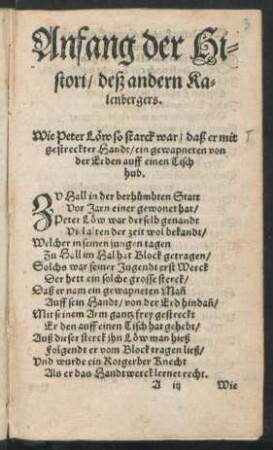 Anfang der Hi-
stori/ deß andern Ka-
lenbergers.
Wie Peter Löw so starck war/ daß er mit
gestreckter Handt/ ein gewapneten von
der Erden auff einen Tisch
hub.
ZV Hall in der berhümbten Statt
Vor Jarn einer gewonet hat/
Peter Löw war derselb genandt
Vielalten der zeit wol bekandt/
Welcher in seinen jungen tagen
Zu Hall im Hal hat Block getragen/
Solchs war seiner Jugendt erst Werck
Der hett ein solche grosse sterck/
Daß er nam ein gewapneten Mañ
Auff sein Handt/ von der Erd hindañ/
Mit seinem Arm gantz frey gestreckt
Er den auff einen Tisch hat gehebt/
Auß dieser sterck jhn Löw man hieß
Folgendt er vom Block tragen ließ/
Vnd wurde ein Rotgerber Knecht
Als er das Handtwerck lernet recht.
A iij Wie